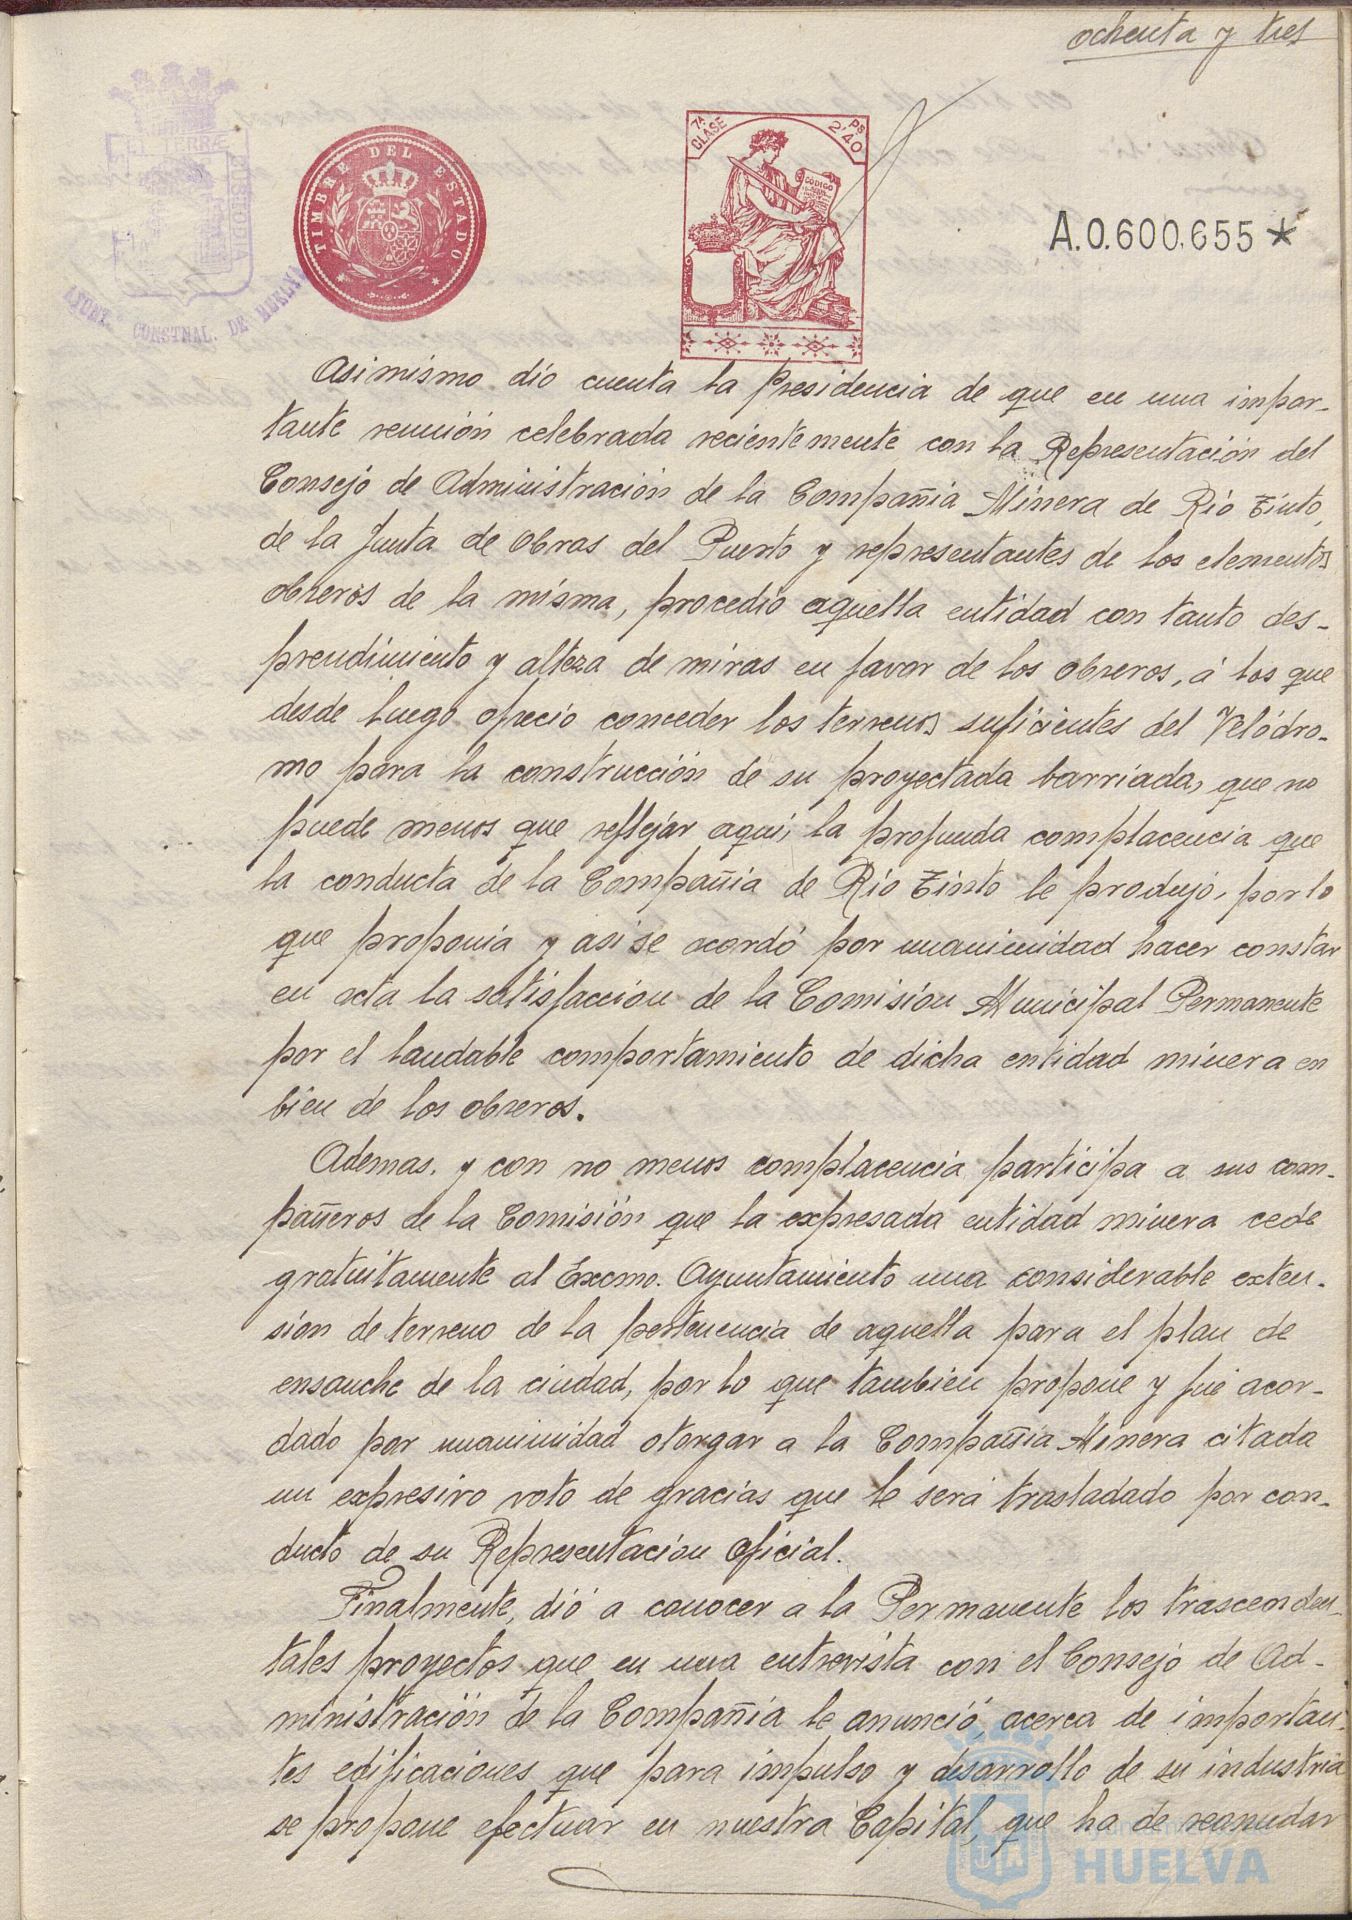 ochenta y tres
TIMBRE DEL ESTADO
7ª CLASE
Ps 2'40
CODIGO
A.0.600.655 *
AYUNT. CONSTNAL. DE HUELVA
Asimismo dió cuenta la Presidencia de que en una impor-
tante reunión celebrada recientemente con la Representación del
Consejo de Administración de la Compañia Minera de Rio Tinto,
de la Junta de Obras del Puerto y representantes de los elementos
obreros de la misma, procedió aquella entidad con tanto des-
prendimiento y alteza de miras en favor de los obreros, á los que
desde luego ofreció conceder los terrenos suficientes del Velódro-
mo para la construcción de su proyectada barriada, que no
puede menos que reflejar aqui, la profunda complacencia que
la conducta de la Compañia de Rio Tinto le produjo, por lo
que proponia y asi se acordó por unanimidad hacer constar
en acta la satisfaccion de la Comisión Municipal Permanente
por el laudable comportamiento de dicha entidad minera en
bien de los obreros.
Ademas, y con no menos complacencia participa a sus com-
pañeros de la Comisión que la expresada entidad minera cede
gratuitamente al Excmo. Ayuntamiento una considerable exten-
sión de terreno de la pertenencia de aquella para el plan de
ensanche de la ciudad, por lo que tambien propone y fué acor-
dado por unanimidad otorgar a la Compañia Minera citada
un expresivo voto de gracias que le será trasladado por con-
ducto de su Representacion Oficial.
Finalmente, dió a conocer a la Permanente los trascenden-
tales proyectos que en una entrevista con el Consejo de Ad-
ministración de la Compañia le anunció, acerca de importan-
tes edificaciones que para impulso y desarrollo de su industria
se propone efectuar en nuestra Capital, que ha de reanudar
HUELVA